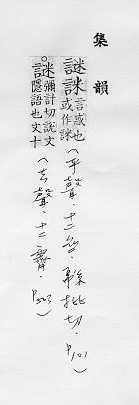 集韻
謎詸 言惑也 或作詸 (平聲.十二齊.緜批切.P.101)
○謎 彌計切說文 隱語也文十 (去聲.十二霽.P.503)